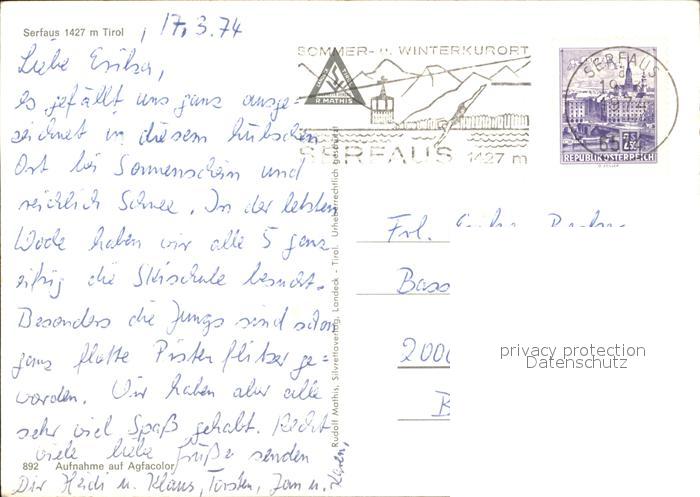 Serfaus 1427 m Tirol
, 17.3.74
Liebe Erika,
es gefällt uns ganz ausge-
zeichnet in diesem hübschen
Ort bei Sonnenschein und
reichlich Schnee. In der letzten
Woche haben wir alle 5 ganz
eifrig die Skischule besucht.
Besonders die Jungs sind schon
ganz flotte Pistenflitzer ge-
worden. Wir haben aber alle
sehr viel Spaß gehabt. Recht
viele liebe Grüße senden
892 Aufnahme auf Agfacolor
Dir Heidi u. Klaus, Torsten, Jan u.
Rudolf Mathis, Silvrettaverlag, Landeck - Tirol. Urheberrechtlich geschützt
R. MATHIS
SOMMER- u. WINTERKURORT
SERFAUS 1427 m
SERFAUS
6534
REPUBLIK ÖSTERREICH
Frl.
Bass
2000
privacy protection
Datenschutz